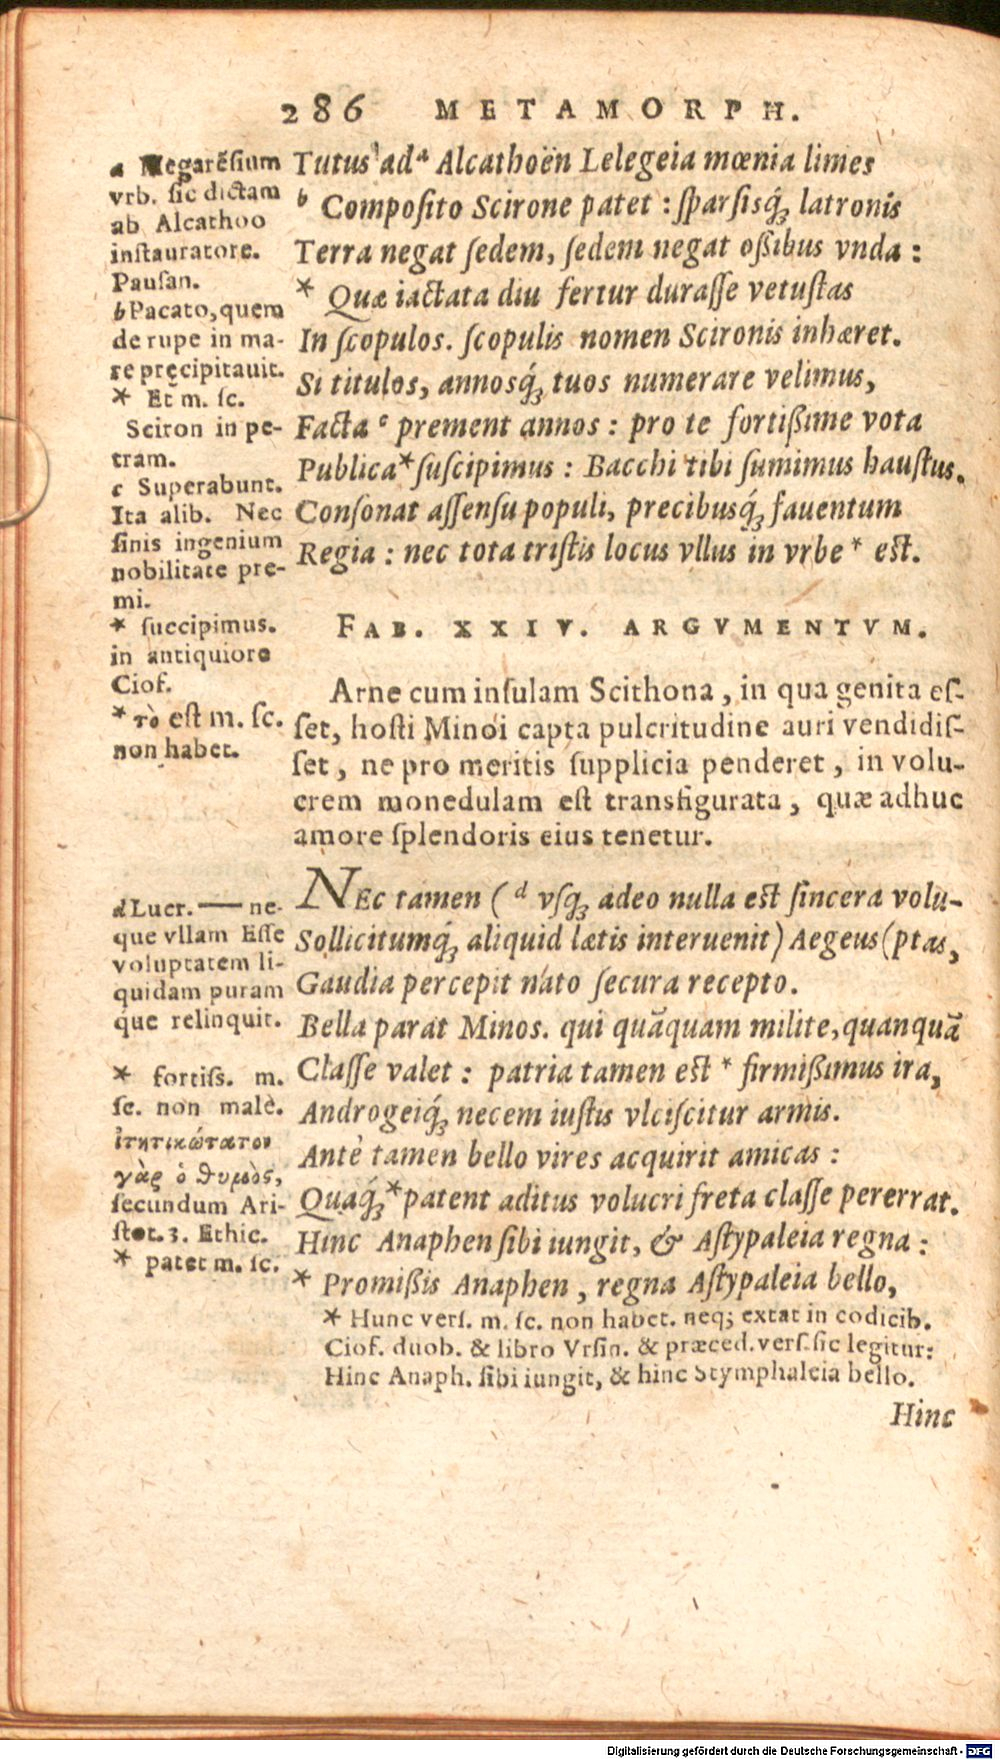 286 METAMORPH.
Tutus ad ᵃ Alcathoën Lelegeia mœnia limes
ᵇ Composito Scirone patet : sparsisq́ꝫ latronis
Terra negat sedem, sedem negat ossibus vnda :
* Quæ iactata diu fertur durasse vetustas
In scopulos. scopulis nomen Scironis inhæret.
Si titulos, annosq́ꝫ tuos numerare velimus,
Facta ᶜ prement annos : pro te fortissime vota
Publica * suscipimus : Bacchi tibi sumimus haustus.
Consonat assensu populi, precibusq́ꝫ fauentum
Regia : nec tota tristis locus vllus in vrbe * est.
a Megarēsium
vrb. sic dictam
ab Alcathoo
instauratore.
Pausan.
b Pacato, quem
de rupe in ma-
re pręcipitauit.
* Et m. sc.
Sciron in pe-
tram.
c Superabunt.
Ita alib. Nec
sinis ingenium
nobilitate pre-
mi.
* succipimus.
in antiquiore
Ciof.
* τὸ est m. sc.
non habet.
FAB. XXIV. ARGVMENTVM.
Arne cum insulam Scithona, in qua genita es-
set, hosti Minoi capta pulcritudine auri vendidis-
set, ne pro meritis supplicia penderet, in volu-
crem monedulam est transfigurata, quæ adhuc
amore splendoris eius tenetur.
NEc tamen ( ᵈ vsqꝫ adeo nulla est sincera volu-
Sollicitumq́ꝫ aliquid lætis interuenit) Aegeus (ptas,
Gaudia percepit nato secura recepto.
Bella parat Minos. qui quāquam milite, quanquā
Classe valet : patria tamen est * firmissimus ira,
Androgeiq́ꝫ necem iustis vlciscitur armis.
Antè tamen bello vires acquirit amicas :
Quaq́ꝫ * patent aditus volucri freta classe pererrat.
Hinc Anaphen sibi iungit, & Astypaleia regna :
* Promissis Anaphen, regna Astypaleia bello,
d Lucr. — ne-
que vllam Esse
voluptatem li-
quidam puram
que relinquit.
* fortiss. m.
sc. non malè.
ἰτητικώτατον
γὰρ ὁ θυμὸς,
secundum Ari-
stot. 3. Ethic.
* patet m. sc.
* Hunc vers. m. sc. non habet. neq; extat in codicib.
Ciof. duob. & libro Vrsin. & præced. vers. sic legitur:
Hinc Anaph. sibi iungit, & hinc Stymphaleia bello.
Hinc
Digitalisierung gefördert durch die Deutsche Forschungsgemeinschaft - DFG